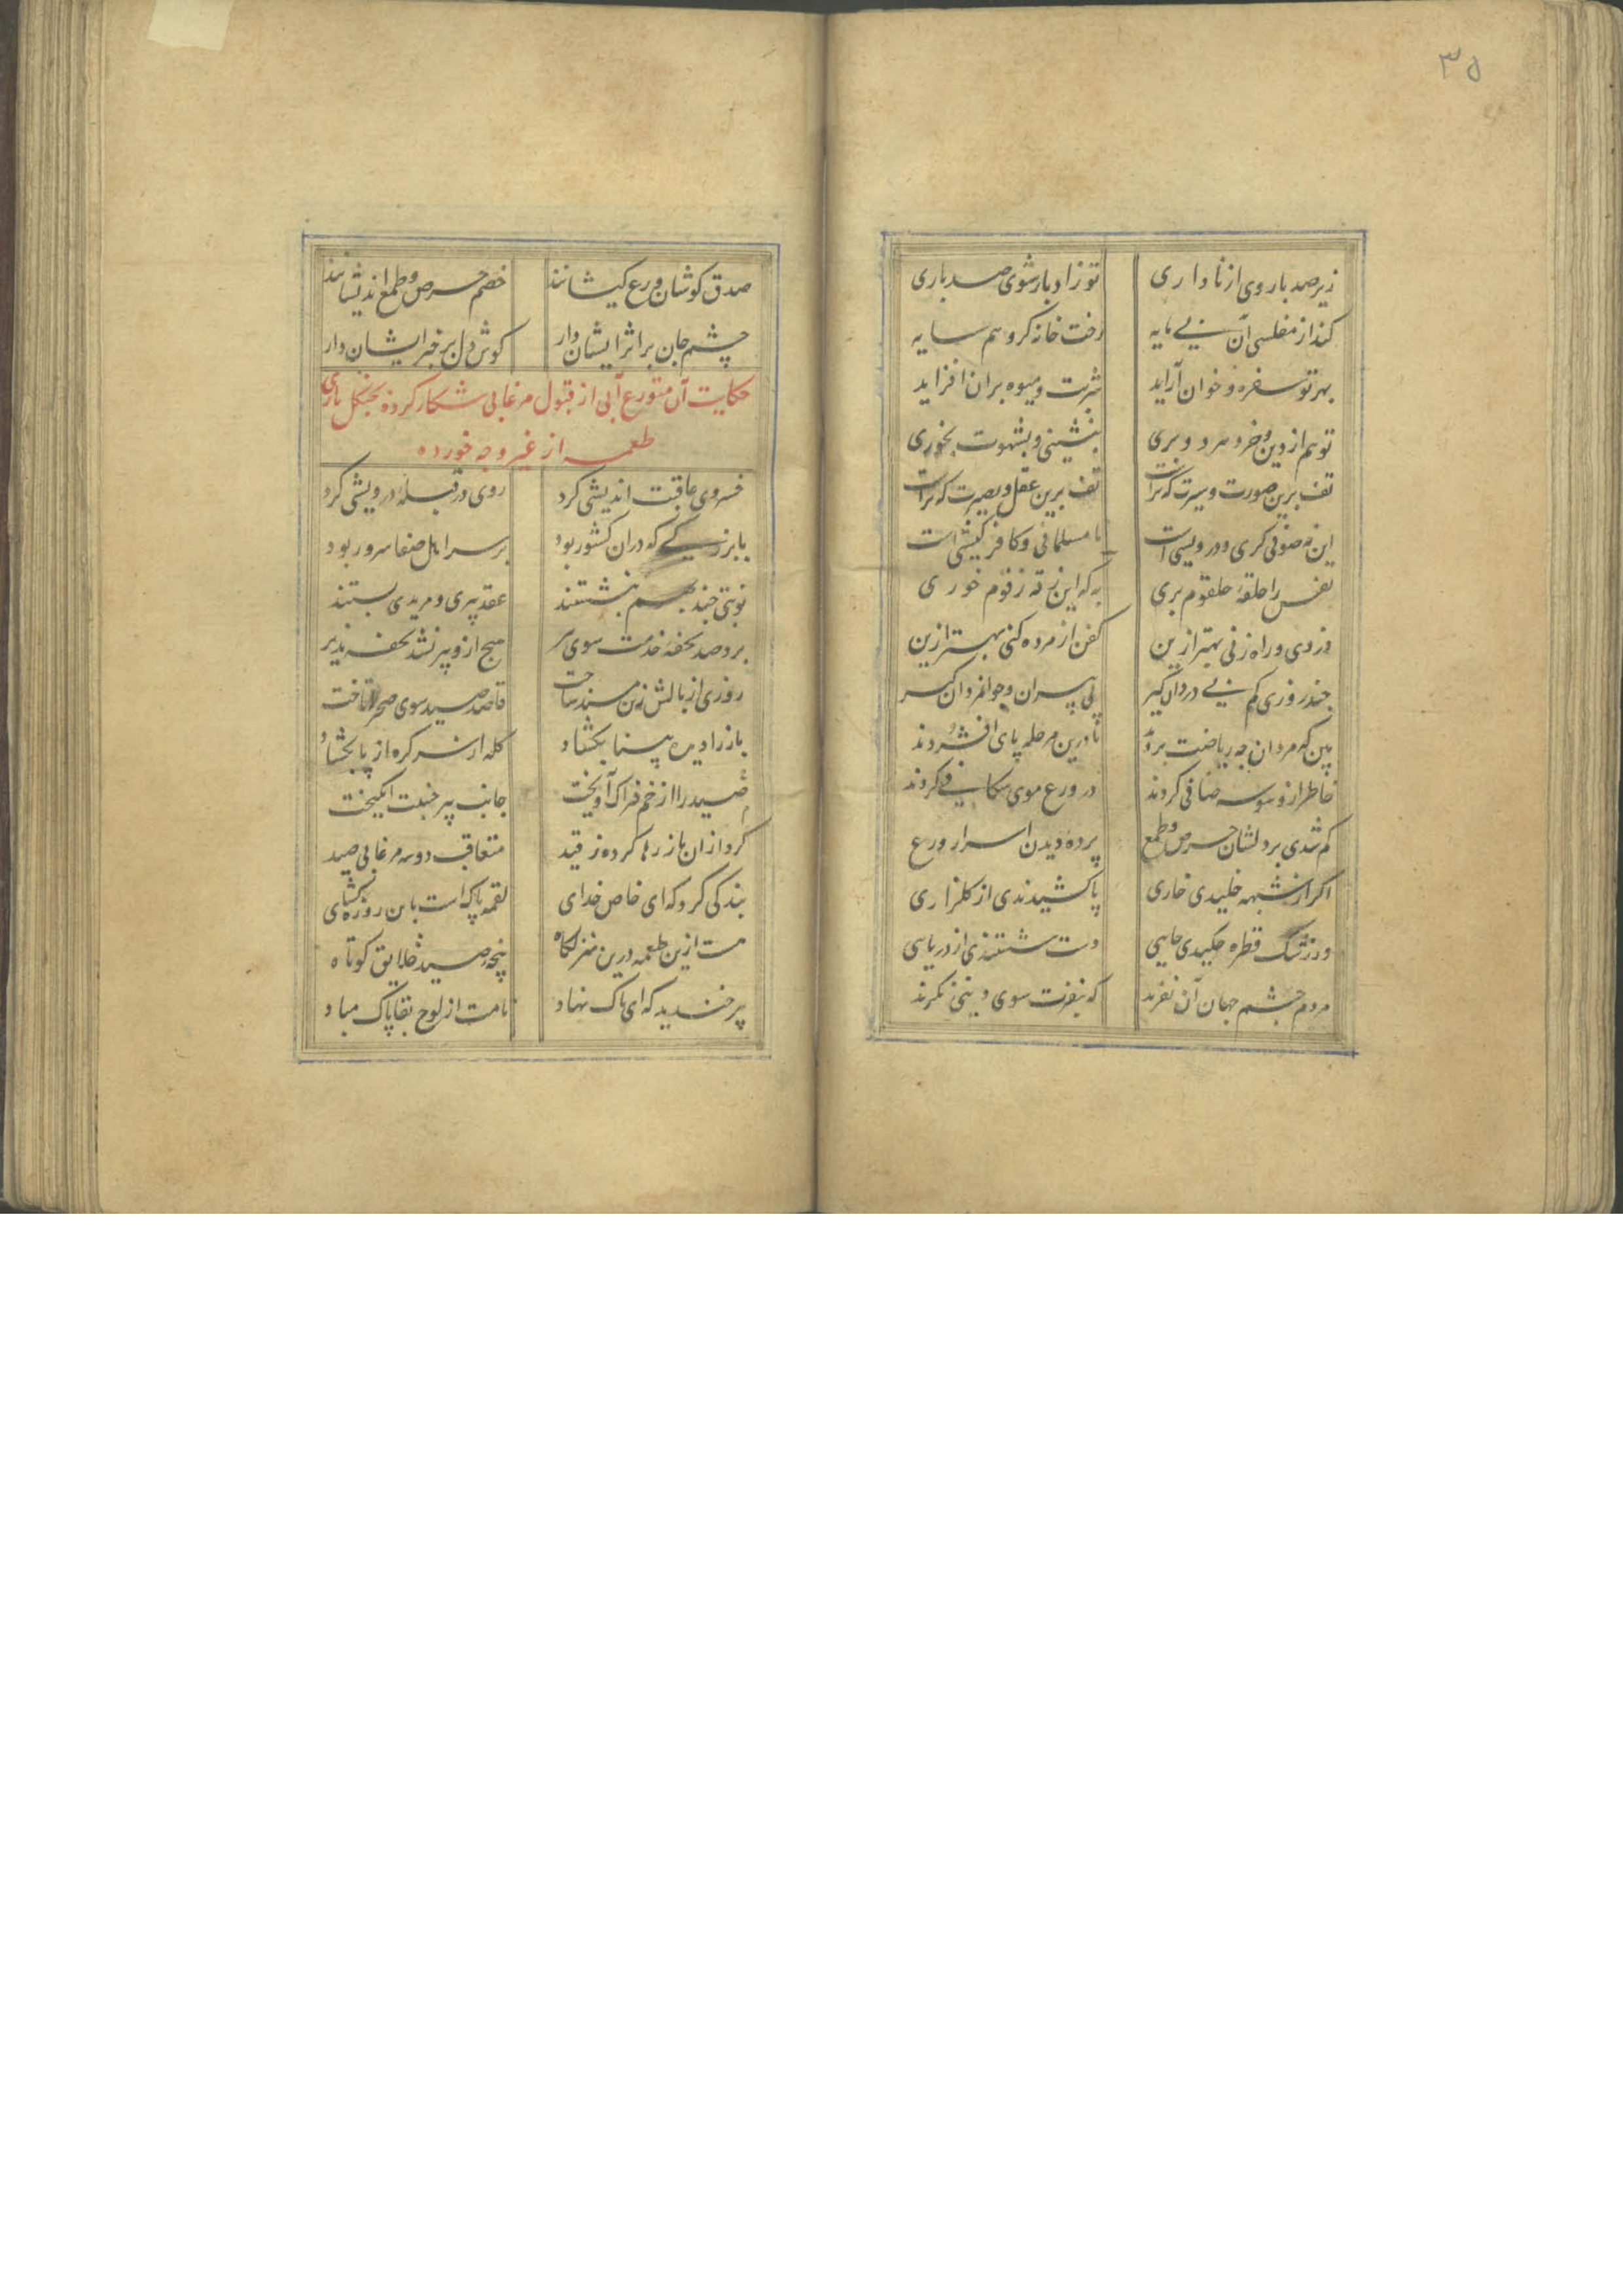 ۳۵
زیر صد بار وی از ناداری تو ز ادبار شوی صد باری
کند از مفلسی آن بی مایه رخت خانه کرو هم سایه
بهر تو سفره و خوان آراید شربت و میوه بران افزاید
تو هم از دین و خرد بری بنشینی و بشهوت بخوری
تف برین صورت و سیرت که تراست تف برین عقل و بصیرت که تراست
این نه صوفی کری و درویشی است نا مسلمانی و کافر کیشی است
نفس را حلقهٔ حلقوم بری به که این زقه زقوم خوری
دزدی و راه زنی بهتر ازین کفن از مرده کنی بهتر ازین
چند روزی کم بی دردان کیر پی پیران و جوانمردان کیر
بین که مردان چه ریاضت بردند تا درین مرحله پای افشردند
خاطر از وسوسه صافی کردند در ورع موی شکافی کردند
کم شدی بر دلشان حرص و طمع پرده دیدن اسرار ورع
اکر از شبهه خلیدی خاری پا کشیدندی از کلزاری
ور ز شک قطره چکیدی جایی دست شستندی از دریایی
مردم چشم جهان آن نفرند که بنفرت سوی دینی نکرند
صدق کوشان ورع کیشانند خصم حرص و طمع اندیشانند
چشم جان بر اثر ایشان دار کوش دل بر خبر ایشان دار
حکایت آن متورع آبی از قبول مرغابی شکار کرده بچنکل بازی
طعمه از غیر وجه خورده
خسروی عاقبت اندیشی کرد روی در قبلهٔ درویشی کرد
با بزرکی که دران کشور بود بر سر اهل صفا سرور بود
نوبتی چند بهم بنشستند عقد پیری و مریدی بستند
برد صد تحفهٔ خدمت سوی پیر هیچ ازو پیر نشد تحفه پذیر
روزی از بالش زین مسند ساخت قاصد صید سوی صحرا تاخت
باز را دیده بینا بکشاد کله از سر کره از پا بکشاد
صید را از خم فتراک آویخت جانب پیر جنیبت انکیخت
کرد ازان باز رها کرده ز قید متعاقب دو سه مرغابی صید
بندکی کرد که ای خاص خدای لقمه پاکست باین روزه کشای
هست ازین طعمه درین منزلکاه پنجه صید خلایق کوتاه
پیر خندید که ای پاک نهاد نامت از لوح بقا پاک مباد